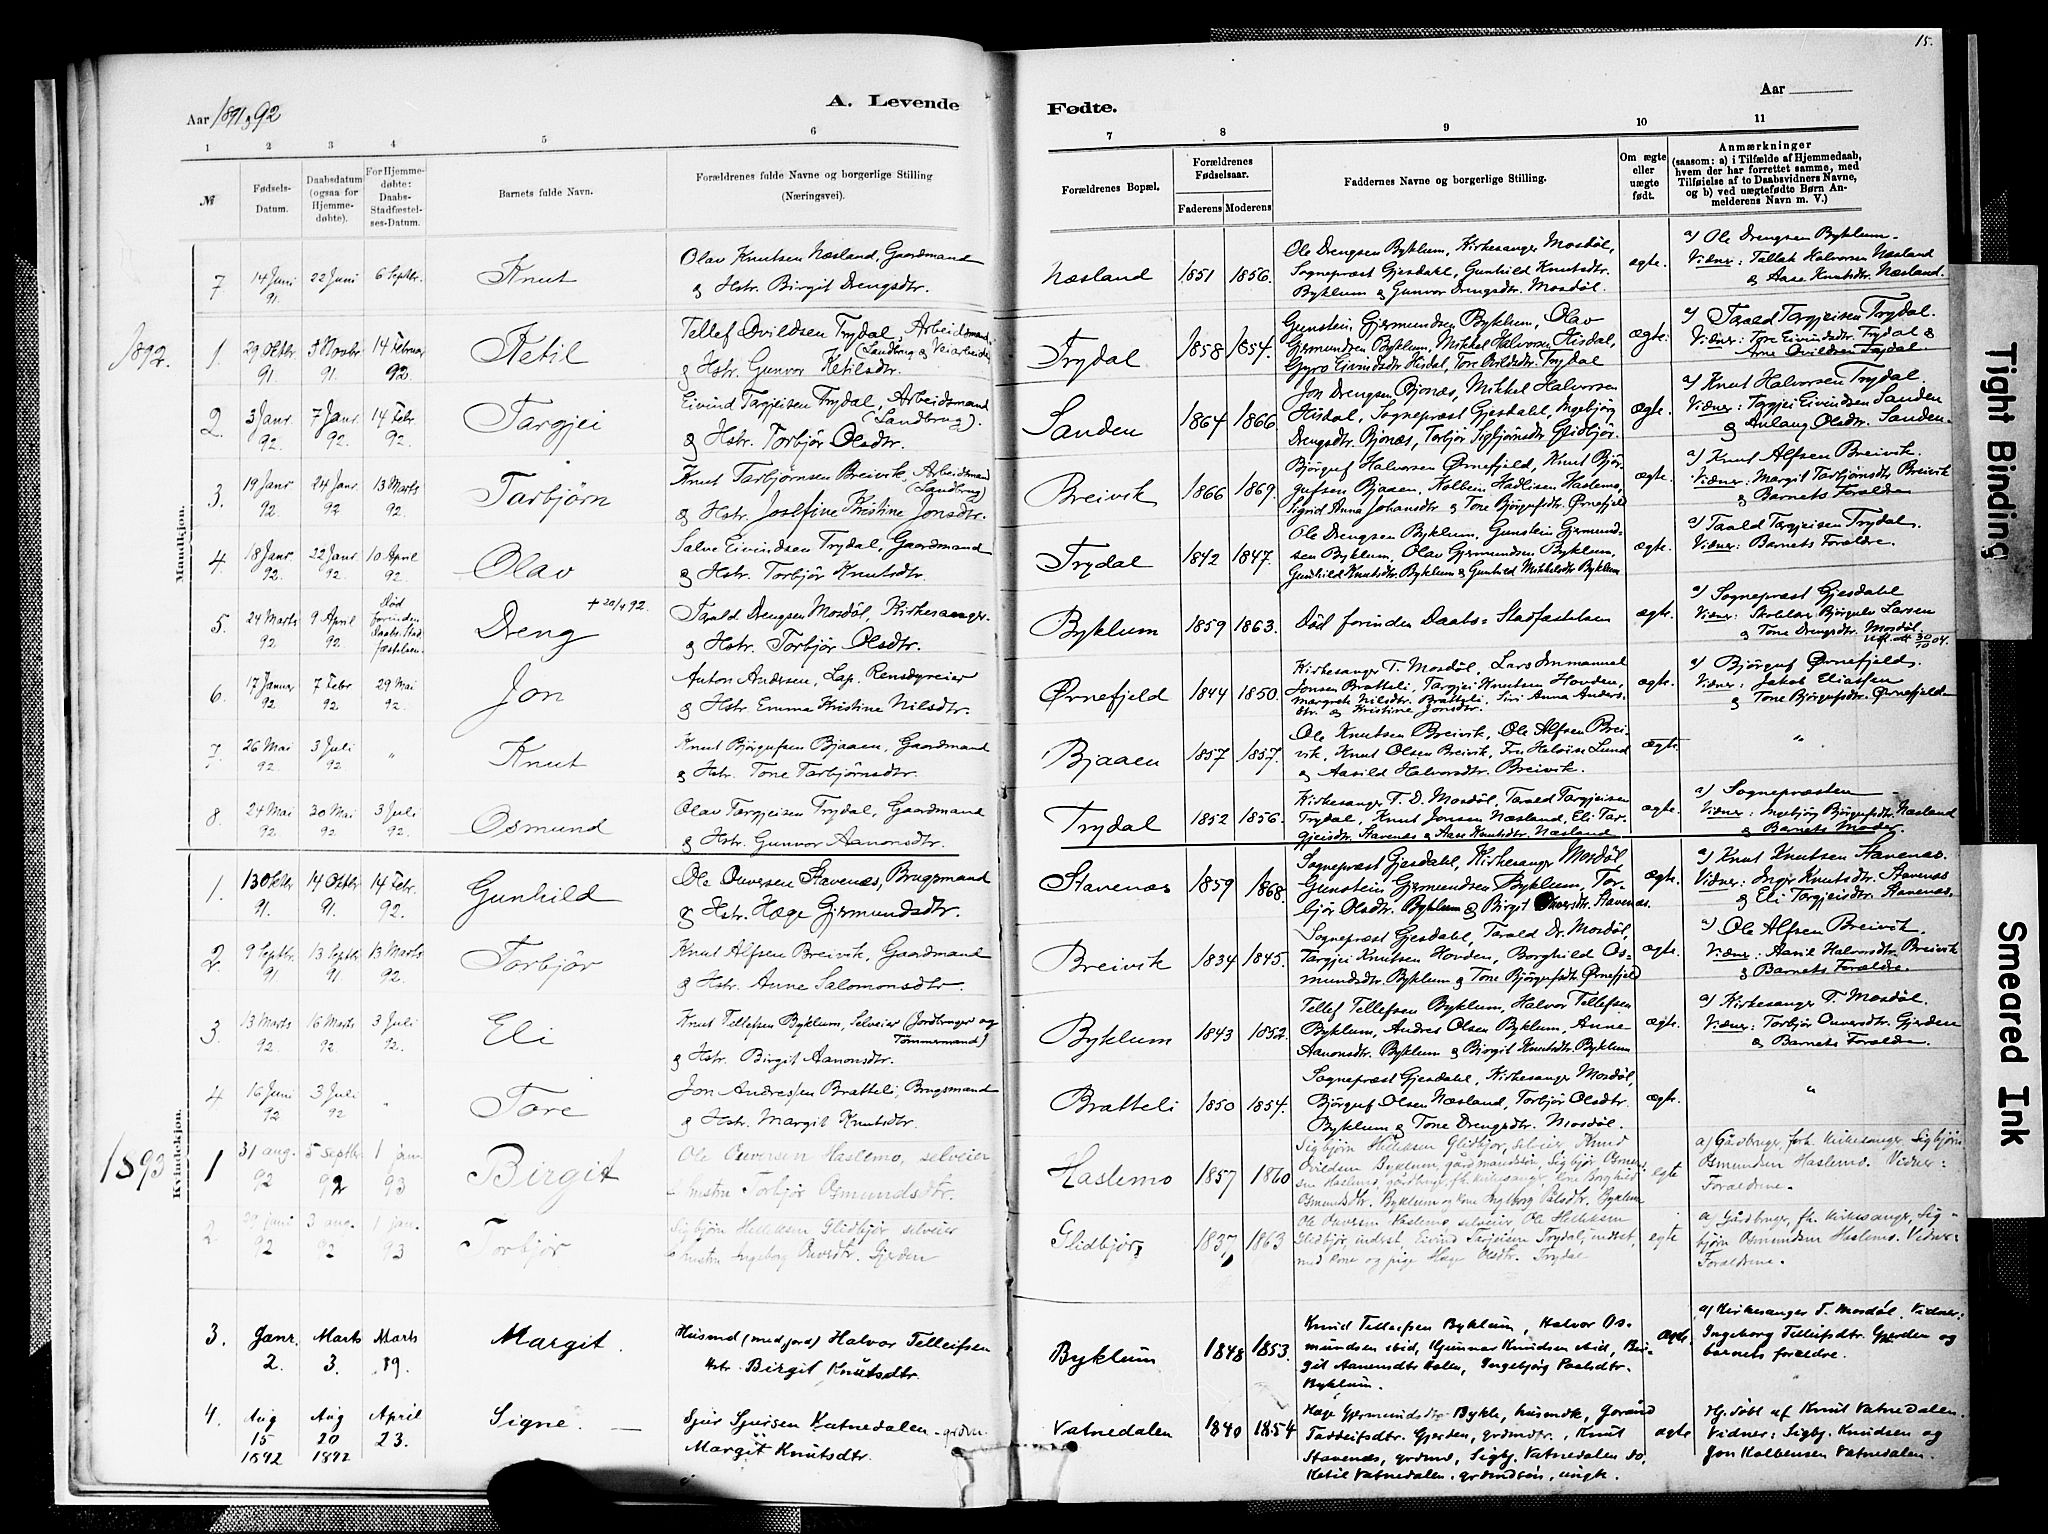 15.
Aar 1891 & 92
A. Levende
Fødte.
Aar
1 2 3 4 5 6 7 8 9 10 11
№
Fødsels-Datum.
Daabsdatum (ogsaa for Hjemmedøbte).
For Hjemmedøbte: Daabs-Stadfæstelses-Datum.
Barnets fulde Navn.
Forældrenes fulde Navne og borgerlige Stilling (Næringsvei).
Forældrenes Bopæl.
Forældrenes Fødselsaar.
Faderens Moderens
Faddernes Navne og borgerlige Stilling.
Om ægte eller uægte født.
Anmærkninger
(saasom: a) i Tilfælde af Hjemmedaab, hvem der har forrettet samme, med Tilføielse af to Daabsvidners Navne, og b) ved uægtefødte Børn Anmelderens Navn m. V.)
Mandkjøn.
7 14 Juni 91. 22 Juni 6 Septbr. Knut
Olav Knutsen Næsland, Gaardmand
& Hstr. Birgit Drengsdtr.
Næsland 1851 1856.
Ole Drengsen Byklum, Kirkesanger Mosdøl,
Sognepræst Gjesdahl, Gunhild Knutsdtr.
Byklum & Gunvor Drengsdtr. Mosdøl.
ægte.
a) Ole Drengsen Byklum.
Vidner: Tellak Halvorsen Næsland
& Aase Knutsdtr. Næsland.
1892.
1. 29 Oktbr. 91. 3 Novbr. 91. 14 Februar 92. Ketil
Tellef Ovildsen Trydal, Arbeidsmand
(Landbrug & Veiarbeide)
& Hstr. Gunvor Ketilsdtr.
Trydal 1858 1854.
Gunstein Gjermundsen Byklum, Olav
Gjermundsen Byklum, Mikkel Halvorsen Hisdal,
Gyro Eivindsdtr Hisdal, Tore Ovildsdtr. Trydal
ægte.
a) Tarald Targjeisen Trydal.
Vidner: Tore Eivindsdtr. Trydal &
Arne Ovildsen Trydal.
2. 3 Janr. 92. 7 Janr. 92. 14 Febr. 92. Targjei
Eivind Targjeisen Trydal, Arbeidsmand
(Landbrug).
& Hstr. Torbjør Olsdtr.
Sanden 1864 1866.
Jon Drengsen Bjones, Mikkel Halvorsen
Hisdal, Sognepræst Gjesdahl, Ingebjörg
Drengsdtr. Bjonæs, Torbjør Sigbjørnsdtr Glidbjör.
ægte.
a) Knut Halvorsen Trydal.
Vidner: Targjei Eivindsen Sanden
& Anlaug Olsdtr. Sanden.
3. 19 Janr 92. 24 Janr. 92 13 Marts 92. Tarbjörn
Knut Tarbjørnsen Breivik, Arbeidsmand
(Landbrug)
& Hstr. Josefine Kristine Jonsdtr.
Breivik 1866 1869.
Bjørguf Halvorsen Ørnefjeld, Knut Bjør-
gufsen Bjaaen, Kolbein Hadlisen Haslemo,
Sigrid Anna Johansdtr & Tone Bjørgufsdtr. Ørnefjeld
ægte.
a) Knut Alfsen Breivik.
Vidner: Margit Tarbjørnsdtr Breivik
& Barnets Forældre
4. 18 Janr 92. 22 Janr. 92. 10 April 92. Olav
Salve Eivindsen Trydal, Gaardmand
& Hstr. Torbjör Knutsdtr.
Trydal 1842 1847.
Ole Drengsen Byklum, Gunstein Gjermund-
sen Byklum, Olav Gjermundsen Byklum,
Gunhild Knutsdtr. Byklum & Gunhild Mikkelsdtr Byklum
ægte.
a) Tarald Targjeisen Trydal.
Vidner: Barnets Forældre.
5. 24 Marts 92 9 April 92. Død forinden Daabs-Stadfæstelsen. Dreng + 20/4 92.
Tarald Drengsen Mosdøl, Kirkesanger
& Hstr. Torbjör Olsdtr.
Byklum 1859 1863.
Død forinden Daabs-Stadfæstelsen
ægte.
a) Sognepræst Gjesdahl
Vidner: Skolelær. Bjørgulv Larsen
& Tone Drengsdtr. Mosdøl.
30/10 04.
6. 17 Januar 92 7 Febr 92. 29 Mai 92. Jon
Anton Andersen, Lap. Rensdyreier
& Hstr. Emma Kristine Nilsdtr.
Ørnefjeld 1844 1850.
Kirkesanger T. Mosdøl, Lars Immanuel
Jonsen Bratteli, Targjei Knutsen Hovden,
Margrete Nilsdtr. Bratteli, Siri Anna Anders-
dtr. & Kristine Jonsdtr.
ægte.
a) Bjørguf Ørnefjeld.
Vidner: Jakob Eliassen
& Tone Bjørgufsdtr. Ørnefjeld
7. 26 Mai 92. 3 Juli 92. " Knut
Knut Bjørgufsen Bjaaen, Gaardmand
& Hstr. Tone Tarbjørnsdtr.
Bjaaen 1857 1857.
Ole Knutsen Breivik, Ole Alfsen Brei-
vik, Knut Olsen Breivik, Fru Heloise Lund
& Aasild Halvorsdtr. Breivik.
ægte.
"
8. 24 Mai 92. 30 Mai 92. 3 Juli 92. Osmund
Olav Targjeisen Trydal, Gaardmand
& Hstr. Gunvor Aanonsdtr.
Trydal 1852 1856.
Kirkesanger T. D. Mosdøl, Tarald Targjeisen
Trydal, Knut Jonsen Næsland, Eli Tar-
gjeisdtr. Stavenæs & Aase Knutsdtr. Næsland
ægte.
a) Sognepræsten
Vidner: Ingebjörg Bjørgufsdtr. Næsland
& Barnets Moder.
Kvindekjøn.
1. 13 Oktbr 91. 14 Oktbr 91. 14 Febr. 92. Gunhild
Ole Ouversen Stavenæs, Brugsmand
& Hstr. Hæge Gjermundsdtr.
Stavenæs 1859 1868.
Sognepræst Gjesdahl, Kirkesanger Mosdøl
Gunstein Gjermundsen Byklum, Tor-
bjør Olsdtr. Byklum & Birgit Ouversdtr. Stavenæs.
ægte.
a) Knut Knutsen Stavenæs.
Vidner: Inger Knutsdtr. Stavenæs
& Eli Targjeisdtr. Stavenæs.
2. 9 Septbr. 91. 13 Septbr 91. 13 Marts 92. Torbjör
Knut Alfsen Breivik, Gaardmand
& Hstr. Anne Salomonsdtr.
Breivik 1834 1845.
Sognepræst Gjesdahl, Tarald Dr. Mosdøl,
Targjei Knutsen Hovden, Borghild Os-
mundsdtr. Byklum & Tone Bjørgufsdtr Ørnefjeld
ægte.
a) Ole Alfsen Breivik.
Vidner: Aasil Halvorsdtr. Breivik
& Barnets Forældre.
3 13 Marts 92. 16 Marts 92. 3 Juli 92. Eli
Knut Tellefsen Byklum, Selveier (Jordbruger og
Tømmermand)
& Hstr. Birgit Aanonsdtr.
Byklum 1843 1852.
Tellef Tellefsen Byklum, Halvor Tellefsen
Byklum, Andres Olsen Byklum, Anne
Aanonsdtr. Byklum & Birgit Knutsdtr. Byklum
ægte.
a) Kirkesanger T. Mosdøl.
Vidner: Torbjör Ouversdtr. Gjerden
& Barnets Forældre.
4 16 Juni 92 3 Juli 92 " Tore
Jon Andressen Bratteli, Brugsmand
& Hstr. Margit Knutsdtr.
Bratteli 1850 1854.
Sognepræst Gjesdahl, Kirkesanger Mosdøl,
Bjørguf Olsen Næsland, Torbjör Olsdtr.
Byklum & Tone Drengsdtr. Mosdøl.
ægte.
"
1893
1 31 aug. 92 5 septbr 92 1 jan. 93 Birgit
Ole Ouversen Haslemo, selveier
& hustru Torbjör Osmundsdtr.
Haslemo 1857 1860
Sigbjörn Helleksen Glidbjor, selveier, Knud
Ovildsen Byklum, gårdmandssön, Sigbjör Osmun-
sen Haslemo, gårdbrug. fh. kirkesanger, kone Borghild
Osmundsdtr. Byklum og kone Ingeborg Pålsdtr. Byklum
egte
a) Gårdbruger, forh. kirkesanger, Sigbjörn
Osmundsen Haslemo. Vidner:
Forældrene.
2 29 juni 92 3 aug. 92 1 jan. 93 Torbjör
Sigbjörn Helleksen Glidbjör selveier
& hustru Ingeborg Ouversdtr. Gjerden
Glidbjör 1837 1863
Ole Ouversen Haslemo, selveier, Ole Helleksen
Glidbjör, inderst, Eivind Tarjeisen Trydal, inderst,
med kone og pige Hæge Olsdtr. Trydal
egte
a) Gårdbruger, fh. kirkesanger, Sig-
björn Osmundsen Haslemo. Vidner:
Forældrene.
3. Janr. 2. Marts 3. Marts 19. Margit.
Husmd (med jord) Halvor Telleifsen
Hstr. Birgit Knutsdtr.
Byklum 1848 1853.
Knud Telleifsen Byklum, Halvor Os-
mundsen ibid, Gunnar Knudsen ibid, Bir-
git Aanundsdtr Holen, Ingebjørg Paalsdtr.
Byklum.
ægte.
a) Kirkesanger T. Mosdøl, Vidner:
Ingeborg Tellifsdtr. Gjerden og
barnets forældre.
4. Aug 15 1892 Aug 20 1892 April 23. Signe.
Sjur Sjursen Vatnedalen, grdm.
Margit Knutsdtr.
Vatnedalen 1840 1854
Hæge Gjermundsdtr. Bykle, husmdk, Joránd
Taddeifsdtr. Gjerden, grdmdtr., Knut
Stavenæs, grdmd, Sigbj. Vatnedalen do,
Ketil Vatnedalen, grdmdsön, ungk.
ægte
Hj. døbt af Knut Vatnedalen.
Vidner: Sigbj. Knudsen og
Jon Kolbensen Vatnedalen.
Tight Binding
Smeared Ink